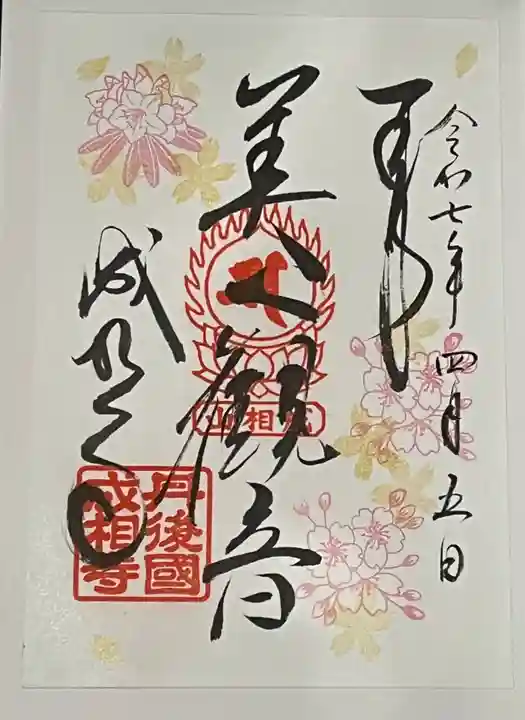 令和七年四月五日
美人観音
成相山
成相寺
丹後國
成相寺